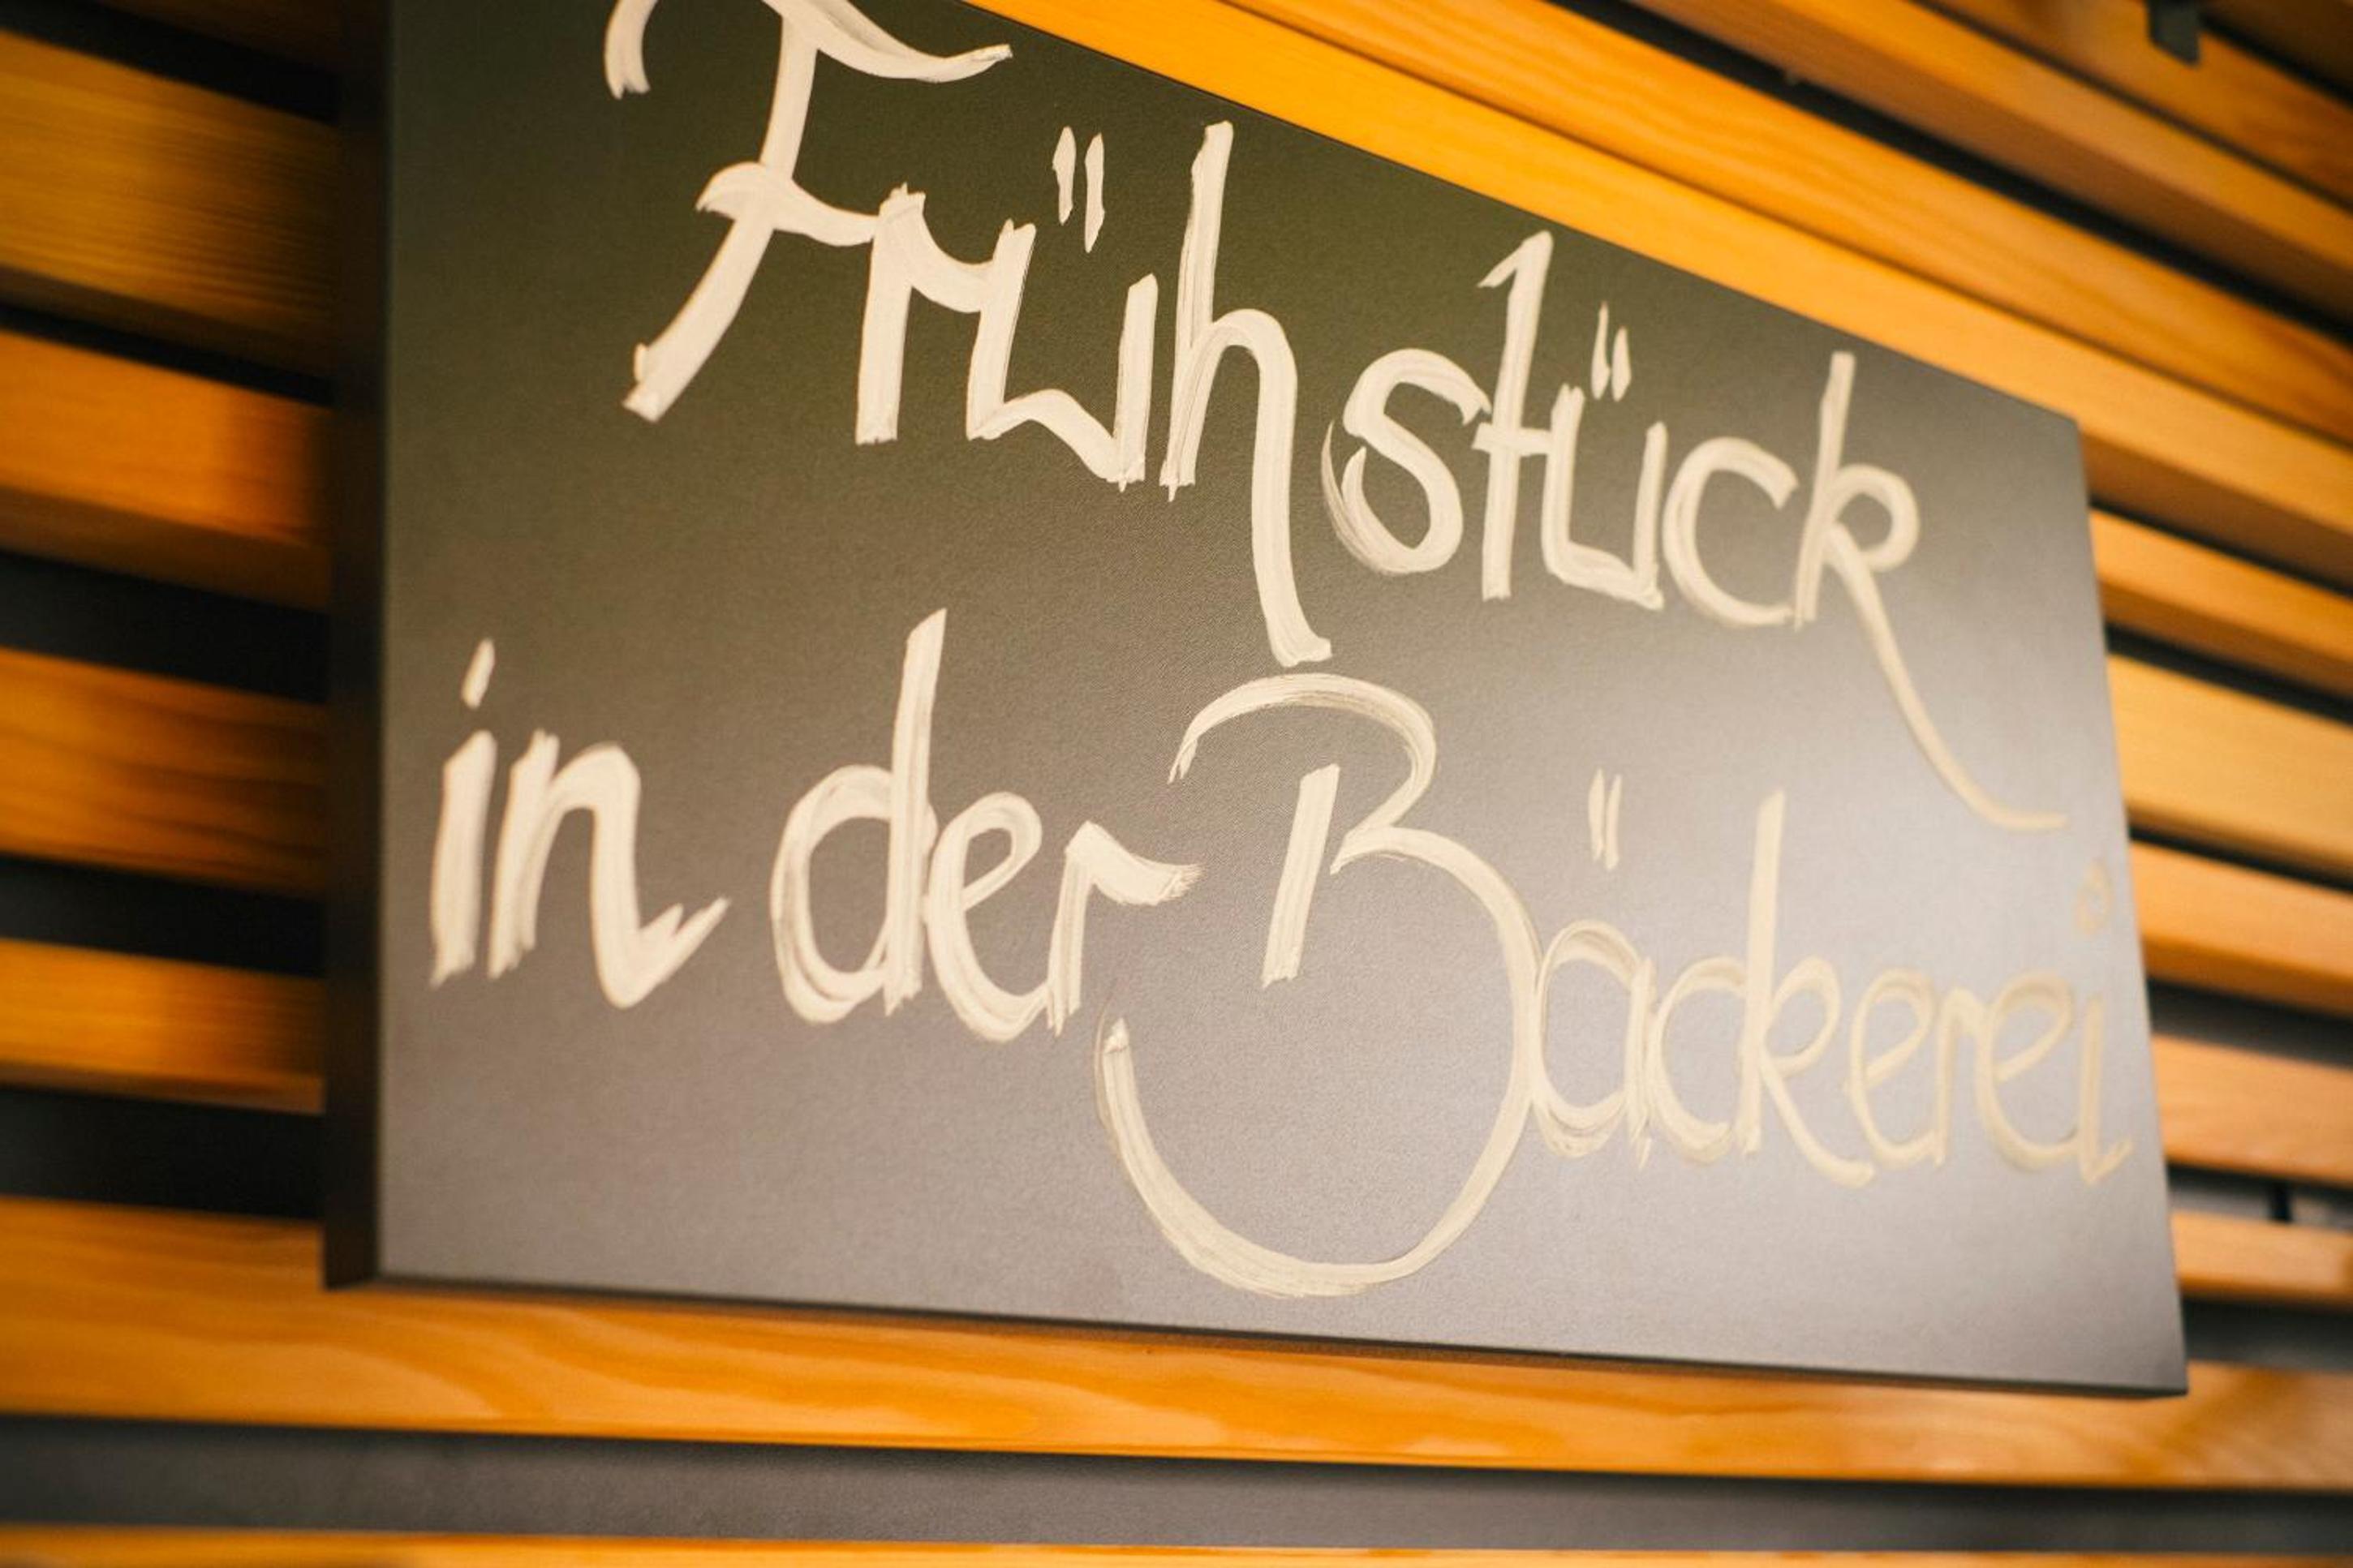 Frühstück
in der Bäckerei